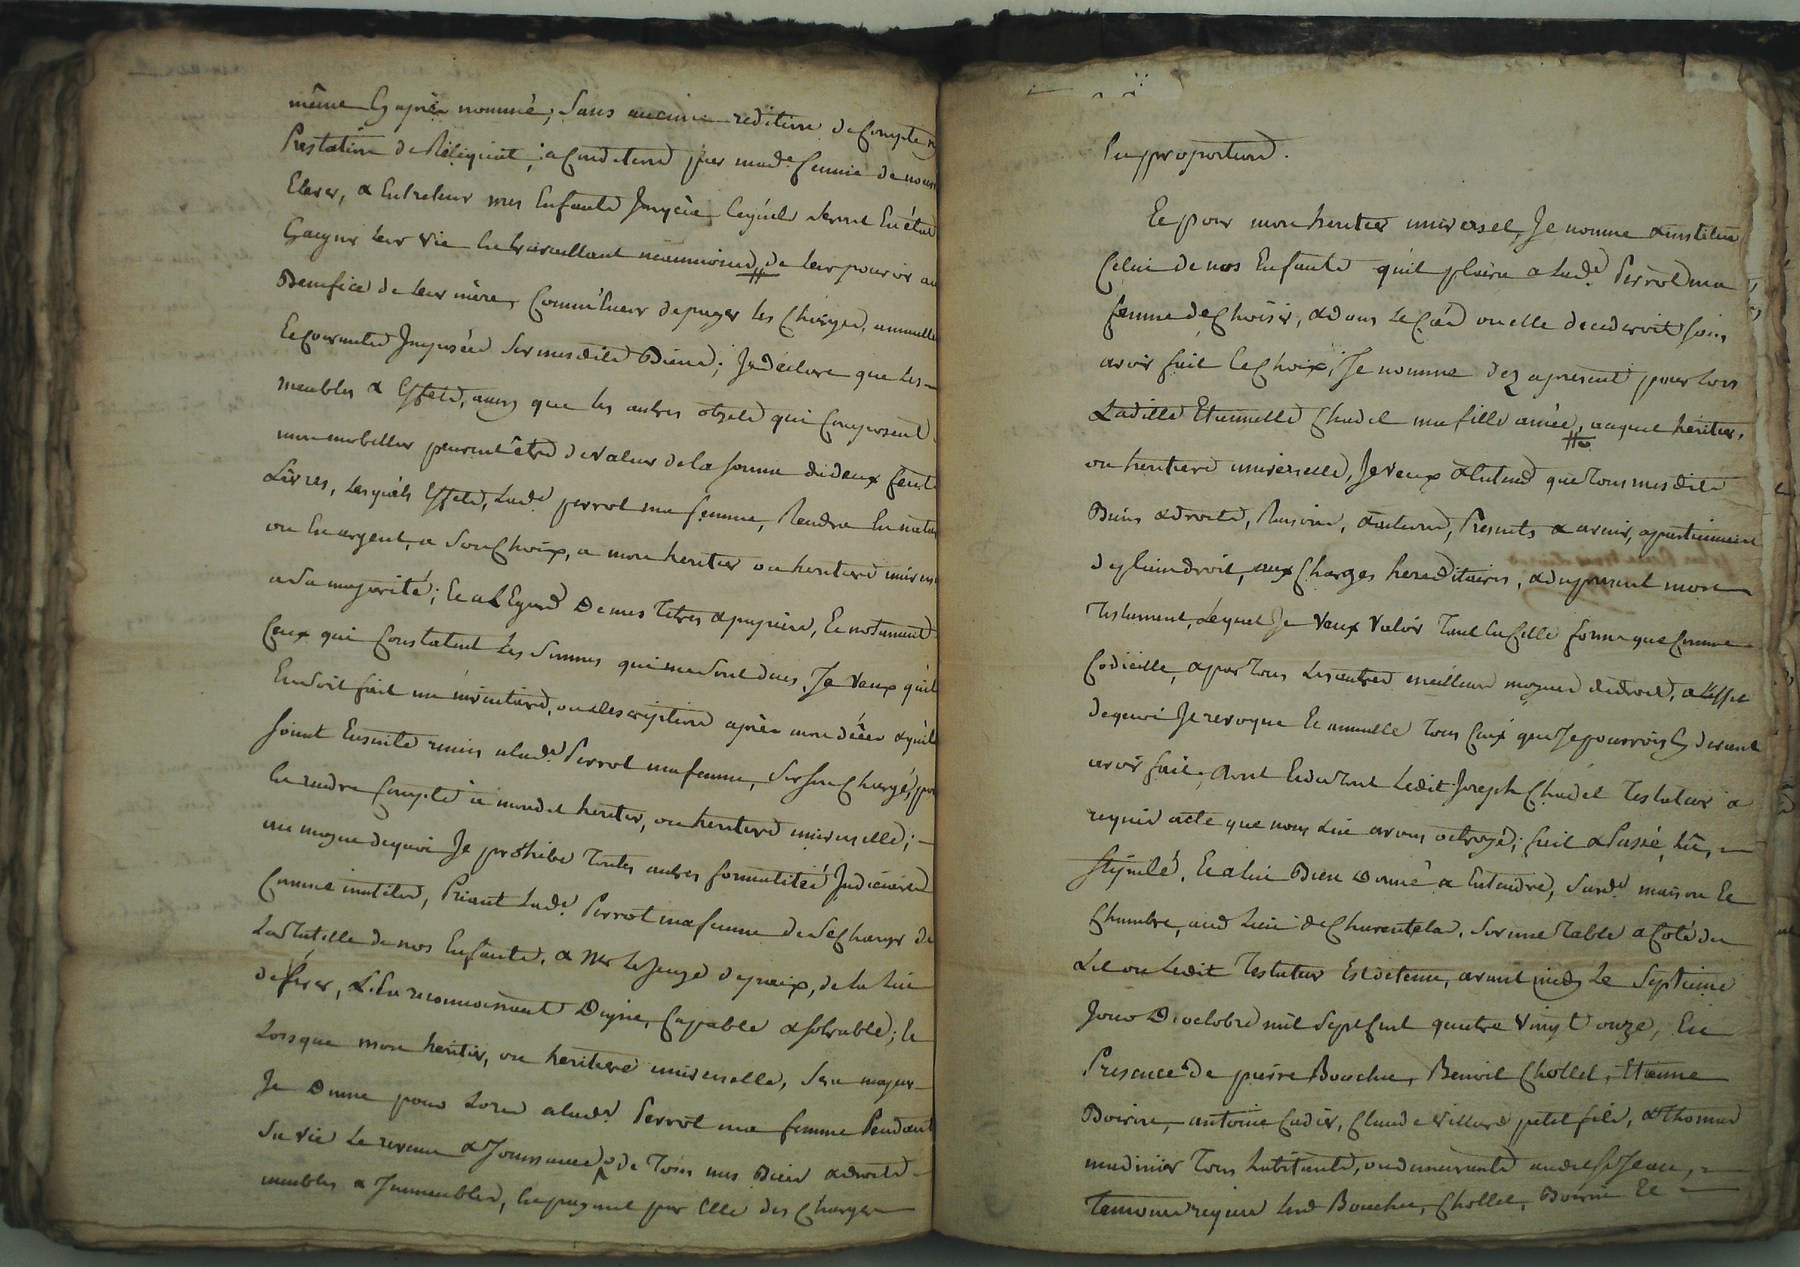 même Cy après nommé, Sans aucune reditions de Compte ny
Prestation de Réliquat, a Conditions par mad.e femme de nourir
Elever, & Entretenir mes Enfants Jusqu'a Cequ'ils seront En état
Gaigner leur vie En travaillant neanmoins de leur pouvoir au
Benefice de leur mère, Comm'aussi de payer les Charges annuelle
Et Courantes Imposées Sur mesdits Biens; Je déclare que Les
meubles & Effets, ainsy que les autres objets qui Composent
mon mobillier peuvent être de valeur de la somme de deux Cents
Livres, Lesquels Effets, Lad.e perrot ma femme, Rendra En nature
ou En argent, a Son Choix, a mon heritier ou heritiere universelle
a Sa majorité; Et a L'Egard De mes Titres & papiers, Et notament
Ceux qui Constatent Les Sommes qui me sont dues, Je Veux qu'il
En soit fait un inventaire, ou description après mon décés & qu'ils
soient Ensuite remis a lad.e Perrot ma femme, Sur son Chargé, pour
En rendre Compte a mondit heritier, ou heritiere universelle;
au moyen dequoi Je prohibe Toutes autres formalités Judiciaires
Comme inutiles, Priant Lad.e Perrot ma femme de Se Charger de
La Tutelle de nos Enfants, & Mr Le Juge de paix, de la Lui
déférer, L'En reconnoissant Digne, Capable & solvable; Et
Lorsque mon heritier, ou heritiere universelle, Sera majeur
Je Donne pour Lors a lad.e Perrot ma femme Pendant
Sa vie Le revenu & Jouissance de Tous mes Biens & droits
meubles & Immeubles, En payant par Elle des Charges
En proportion.
Et pour mon heritier universel, Je nomme & institue
Celui de nos Enfants qu'il plaira a Lad.e Perrot ma
femme de Choisir, & dans Le Cas ou elle decederoit sans
avoir fait le Choix, Je nomme dez apresent pour Lors
Ladille Etiennette Chadel ma fille ainée, auquel héritier,
ou heritiere universelle, Je veux & Entend que Tous mesdits
Biens & droits, Raisons, & actions, Presents & avenir, appartiennent
de plain droit, aux Charges hereditaires, & du present mon
Testament, Lequel Je Veux Valoir Tant En Celle forme que Comme
Codicille, & par Tous Les autres meilleurs moyens de droit, a L'effet
dequoi Je revoque Et annulle Tous Ceux que Je pourrois Cy devant
avoir fait. Dont Et du tout Ledit Joseph Chadel Testateur a
requis acte que nous Lui avons octroyé; fait & Passé, Lû,
stipulé, Et a lui Bien Donné a Entendre, Susd.e maison Et
Chambre, aud Lieu de Charentela, Sur une Table a Coté du
Lit ou Ledit Testateur Est detenu, avant midy Le Septieme
Jour D'octobre mil Sept Cent quatre Vingt onze, En
Presence De pierre Bouchu, Benoit Chollet, Etienne
Boirin, antoine Cadier, Claude Villard petit fils, & Thomas
mudinier Tous habitants, ou demeurants aud St Jean,
Temoins requis Lesd Bouchu, Chollet, Boirin Et